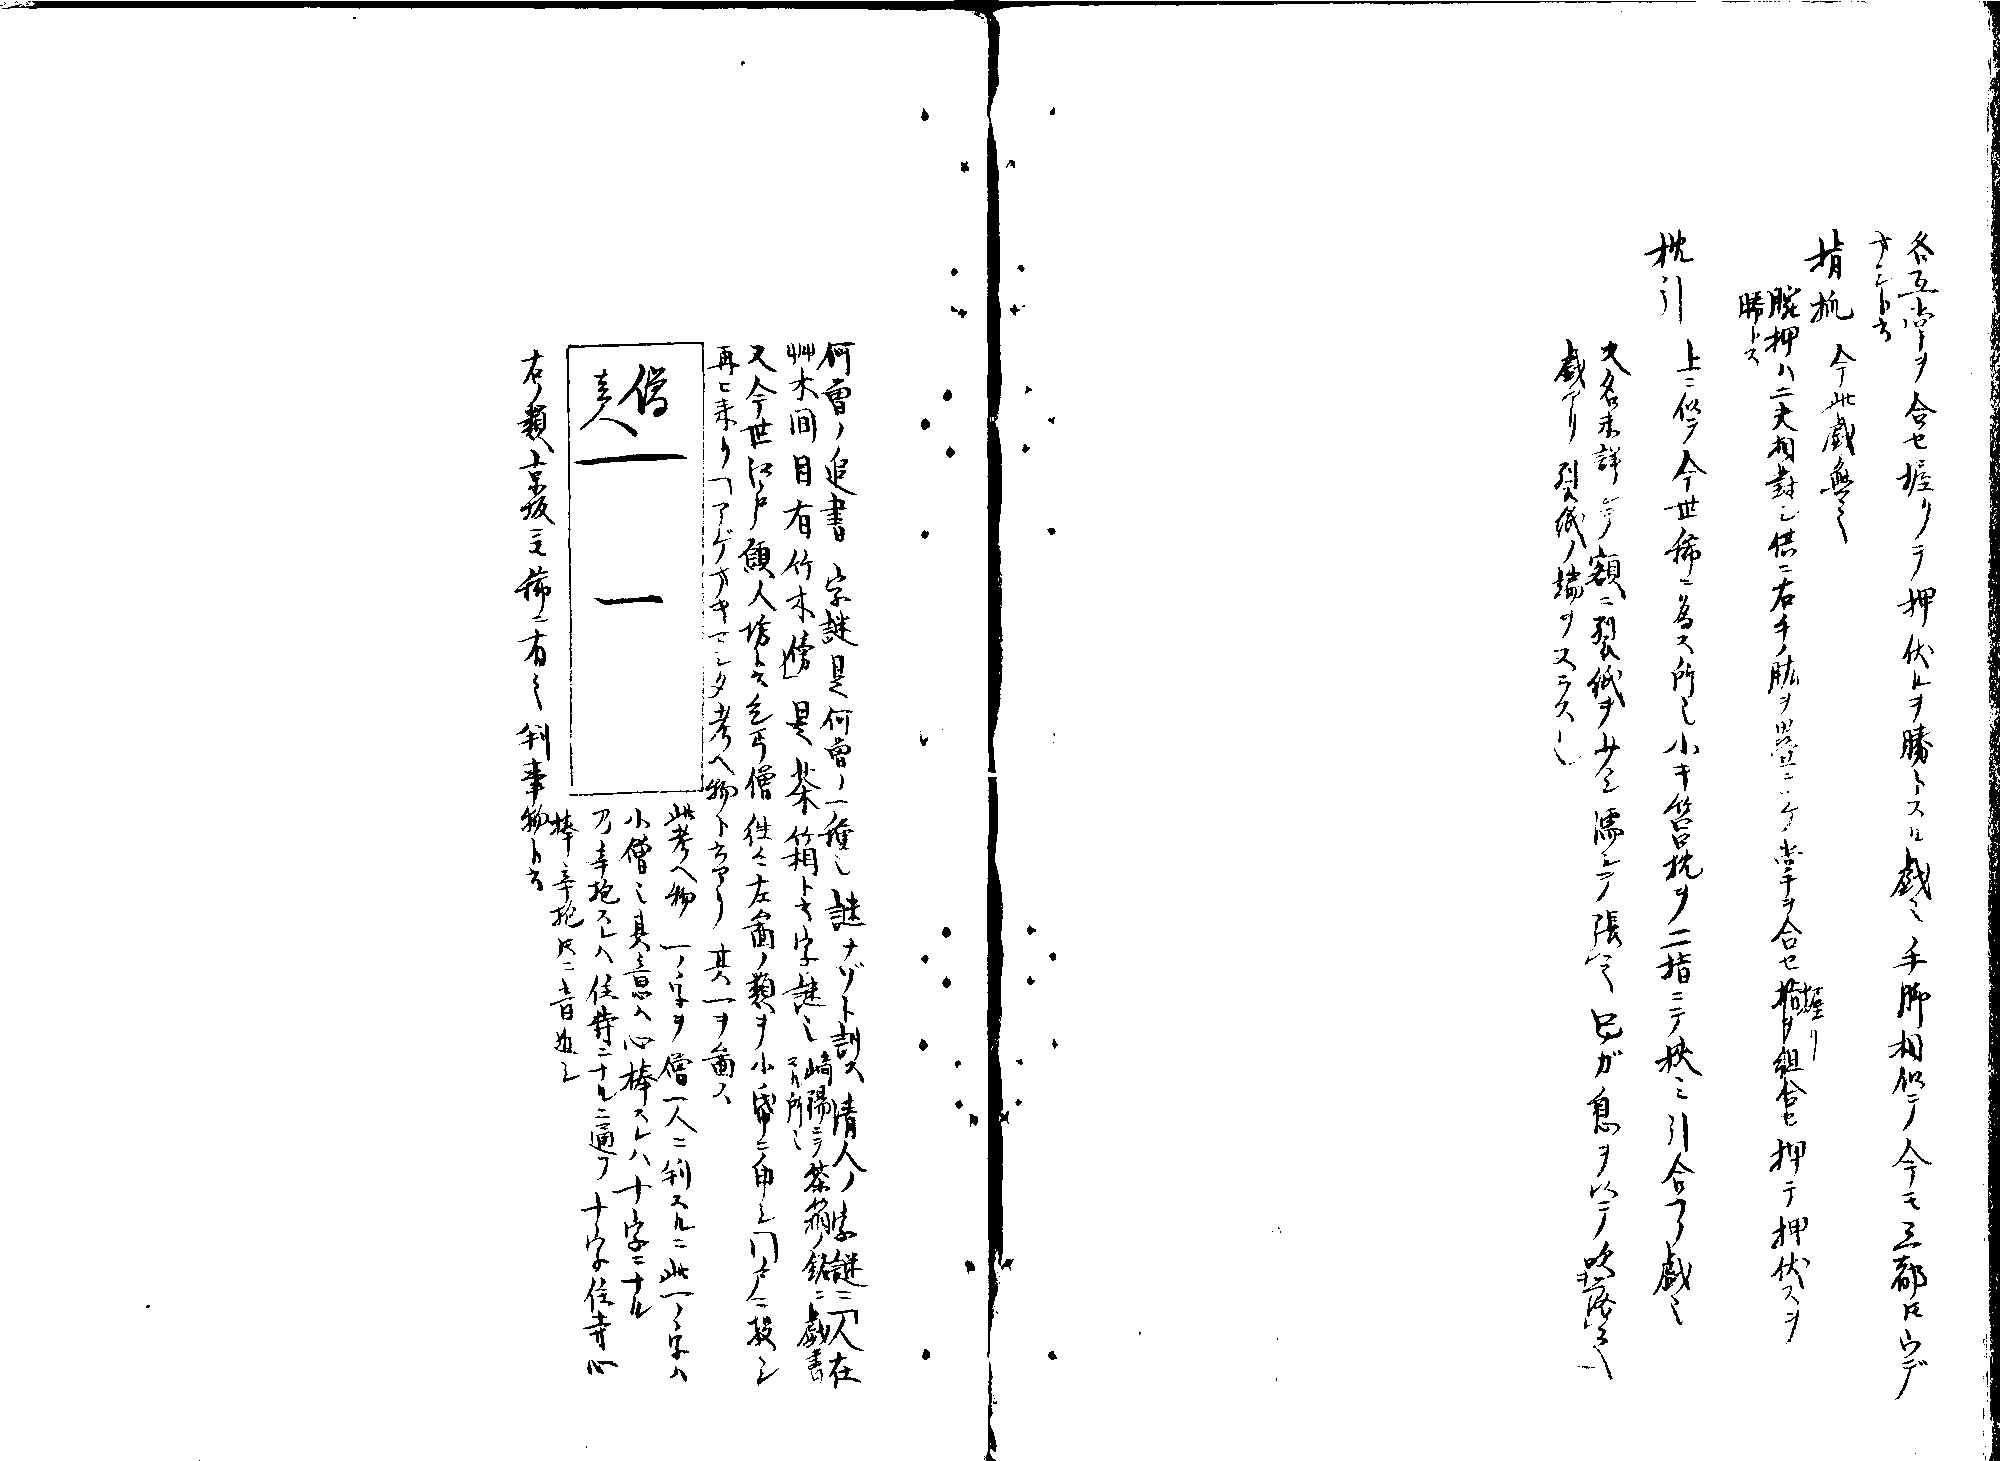 各互掌ヲ合セ握リテ押伏ルヲ勝トスル戯也手脚相似テ今モ三都トモウデ
オシト云
指抓　今此戯無之
腕押ハ二夫相対シ倶ニ右手ノ肱ヲ畳ニツケ掌ヲ合セ握リ指ヲ組合セ押テ押伏スヲ
勝トス
枕引　上ニ似テ今世稀ニ為ス所也小キ筥枕ヲ二指ニテ挟ミ引合フ戯也
又名未詳シテ額ニ裂紙ヲ少シ濡シテ張之己ガ息ヲ以テ吹落之
戯アリ裂紙ノ端ヲスラス也
何曽ノ追書　字謎是何曽ノ一種也謎ナゾト訓ス清人ノ字謎ニ「人在
艸木間目有竹木傍」是茶箱ト云字謎也崎陽ニテ茶箱ノ銘ニ戯書
スル所也
又今世江戸願人坊ト云乞丐僧往々左図ノ類ヲ小帋ニ印シ門戸ニ投シ
再ヒ来リ「アゲオキマシタ考ヘ物ト云アリ其一ヲ図ス
僧
壱人
一
一
此考ヘ物一ノ字ヲ僧一人ニ判スルニ此一ノ字ハ
小僧也其意ハ心棒スレハ十字ニナル
乃辛抱スレハ住持ニナルニ通フ十字住寺心
棒辛抱トモニ音近シ
右ノ類京坂ニモ稀ニ有之判事物ト云